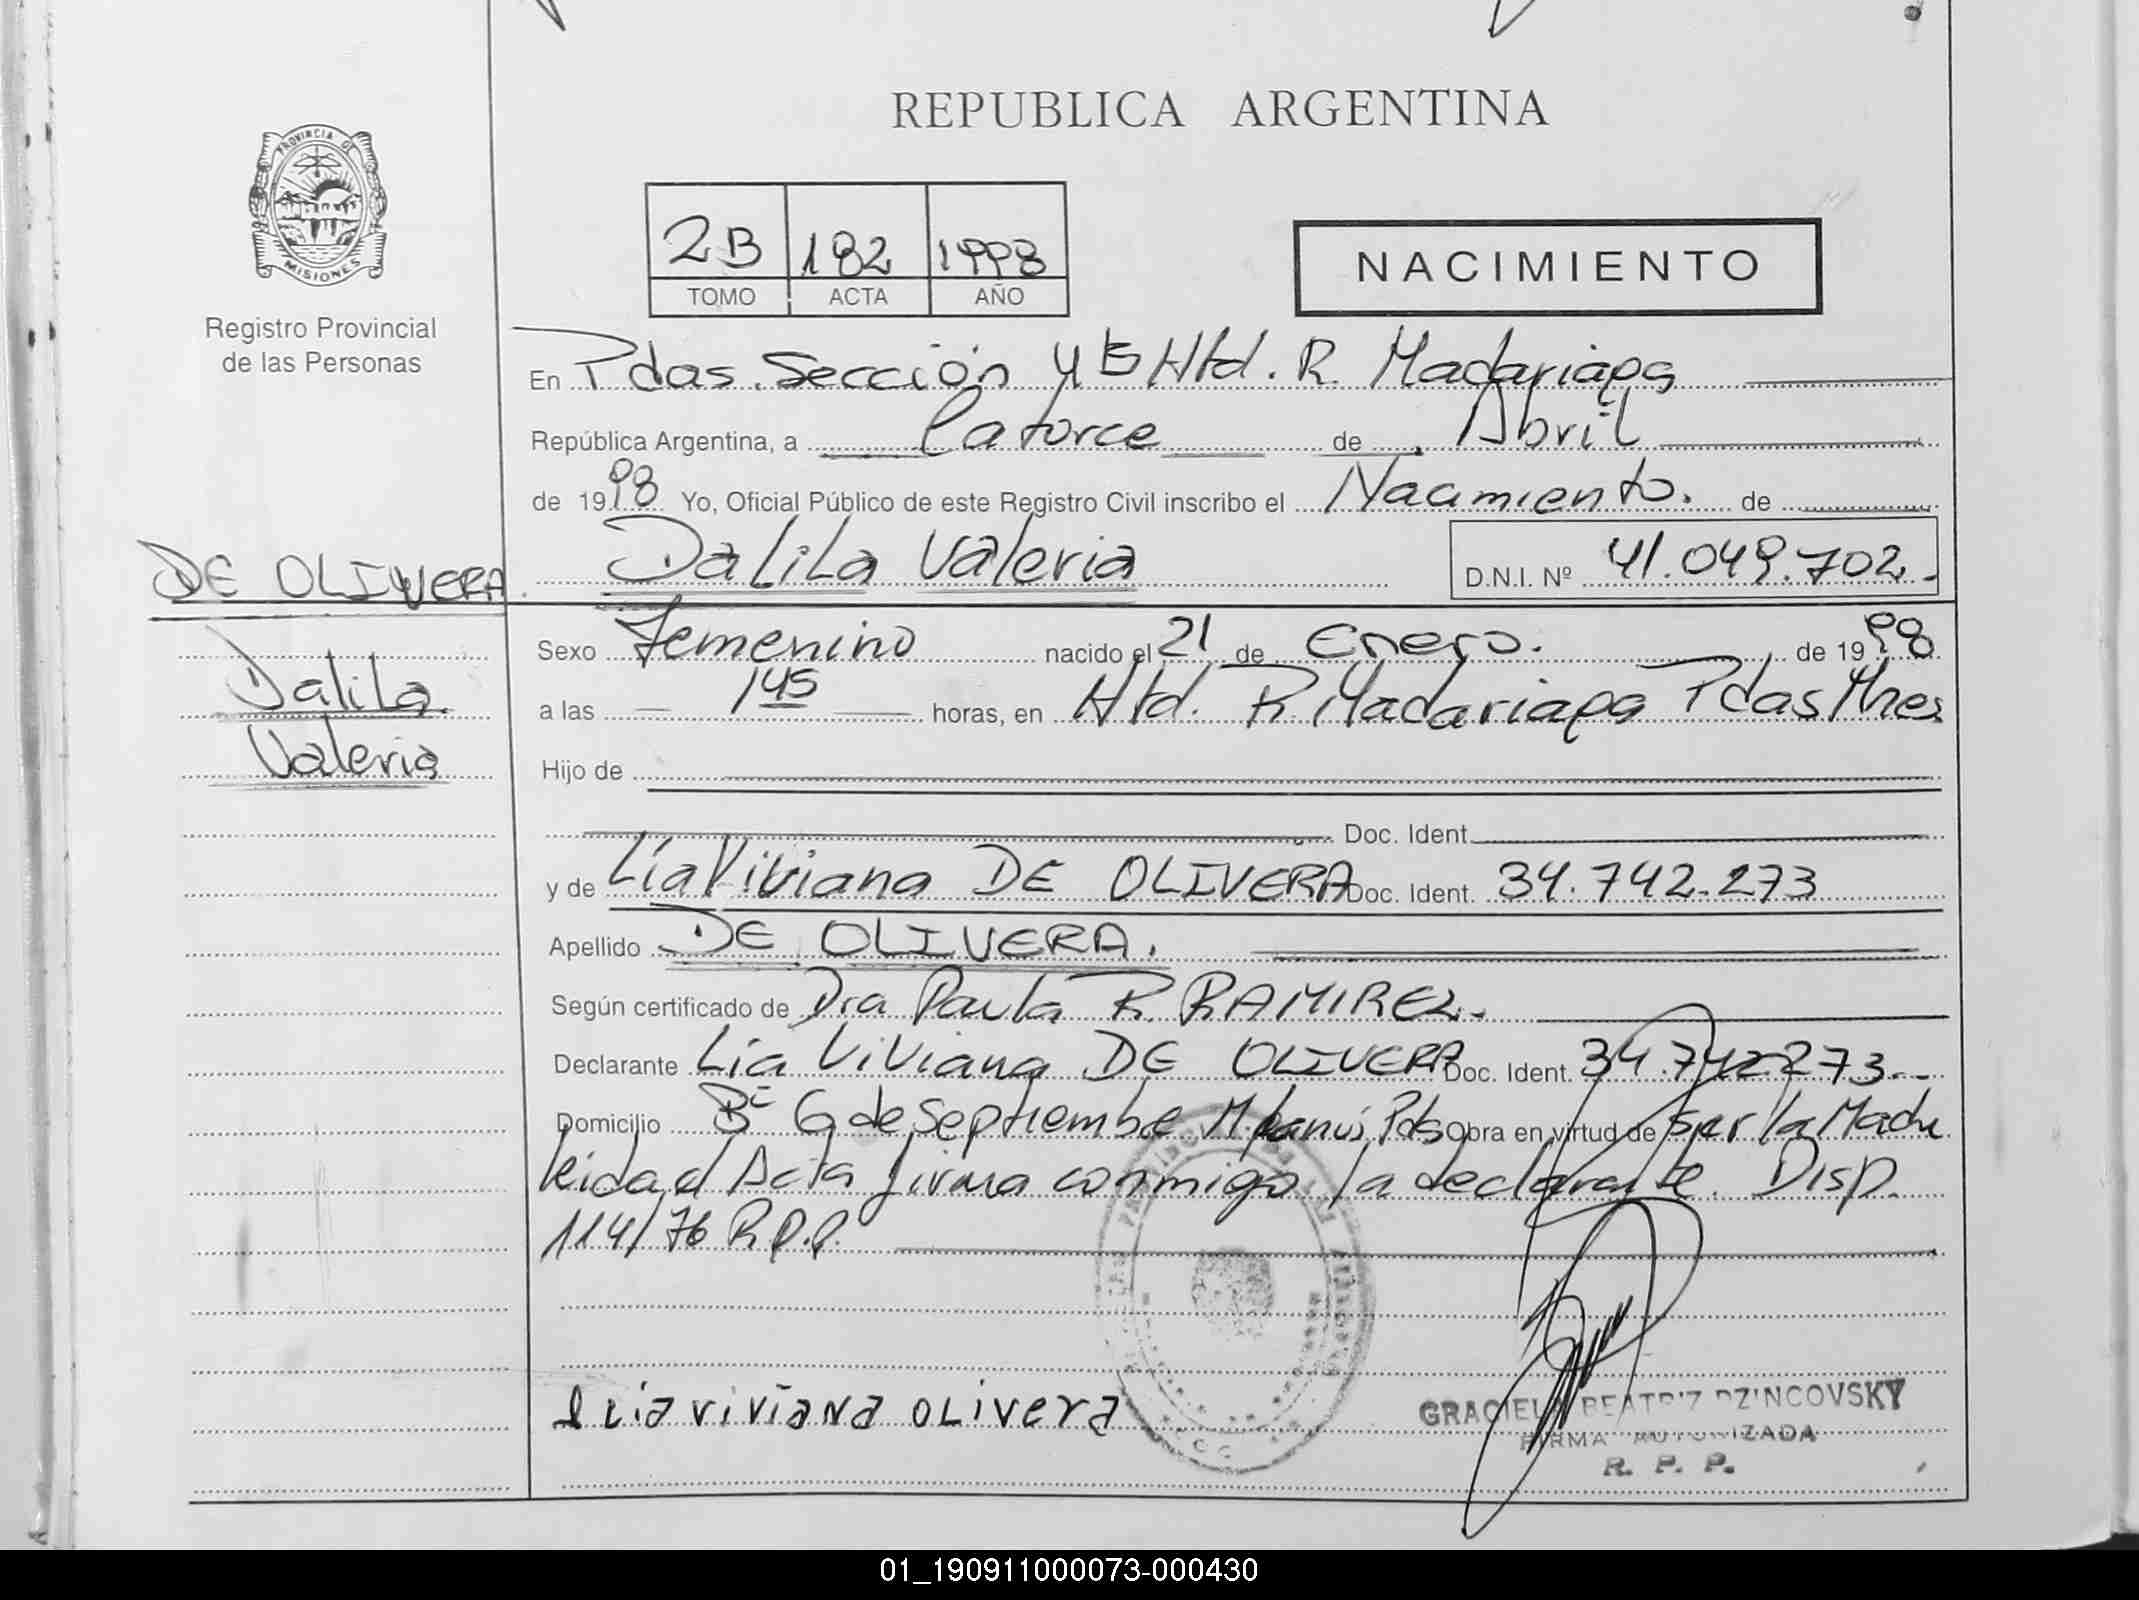 REPUBLICA ARGENTINA
PROVINCIA DE
MISIONES
Registro Provincial
de las Personas
2B 182 1998
TOMO ACTA AÑO
NACIMIENTO
En Pdas. Sección 4 Htd. R. Madariaga
República Argentina, a Catorce de Abril
de 1998 Yo, Oficial Público de este Registro Civil inscribo el Nacimiento. de
DE OLIVERA
Dalila Valeria D.N.I. Nº 41.049.702.-
Dalila
Valeria
Sexo Femenino nacido el 21 de Enero. de 1998
a las 145 horas, en Htd. R. Madariaga Pdas Mnes
Hijo de
Doc. Ident.
y de Lía Viviana DE OLIVERA Doc. Ident. 34.742.273
Apellido DE OLIVERA.
Según certificado de Dra Paula R. RAMIREZ.-
Declarante Lía Viviana DE OLIVERA Doc. Ident. 34.742.273.--
Domicilio Bº 6 de Septiembre Pds Obra en virtud de ser la Madre
leida el Acta firma conmigo la declarante. Disp.
114/76 R.P.P.
Lia viviana OLivera
GRACIELA BEATRIZ DZINCOVSKY
FIRMA AUTORIZADA
R. P. P.
01_190911000073-000430